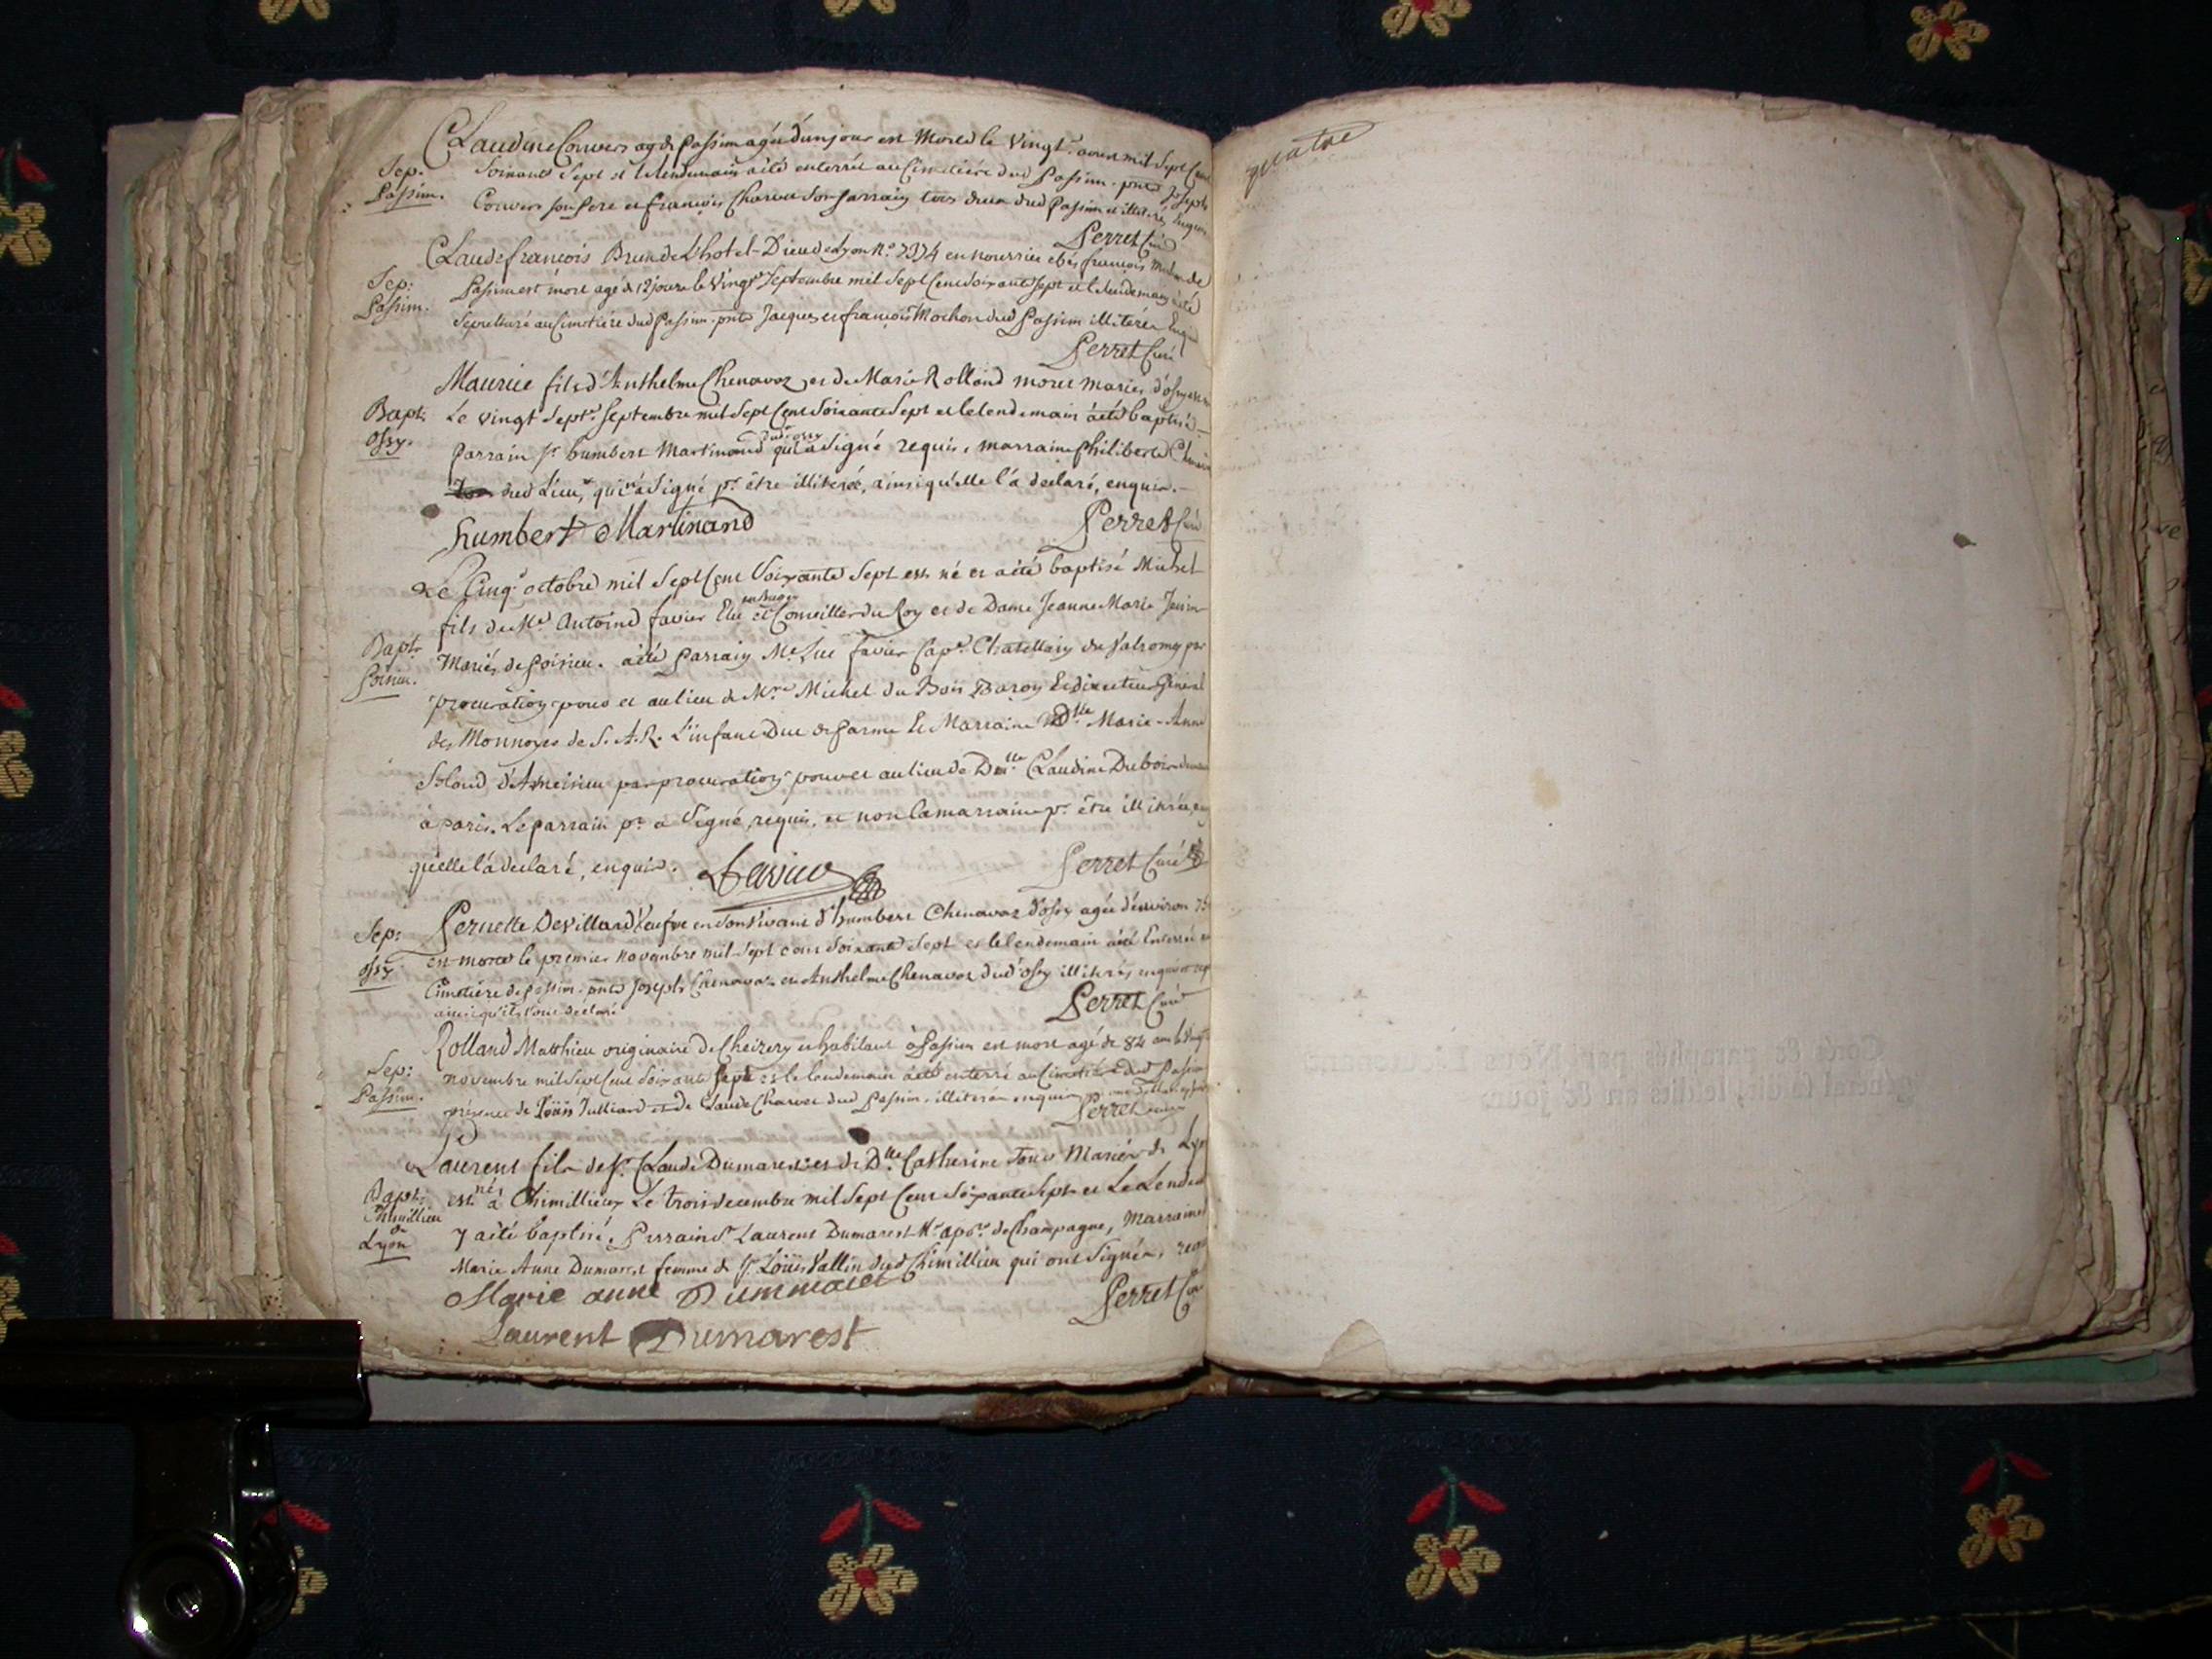 Claudine Convers de Passim agée d'un jour est Morte le Vingt aoust mil Sept Cent
Sep. Soixante Sept et le lendemain a été enterrée au Cimetière dud Passim. pnts Joseph
Passim. Convers son Pere et françois Charvet son parrain tous deux dud Passim illiterés Enquis
Perret Curé
Claude françois Brun de L'hotel-Dieu de Lyon N.° en nourrice chés françois de
Sep: Passim est mort agé de 12 jours le Vingt Septembre mil Sept Cent Soixante Sept et le lendemain a été
Passim. Sepulturé au Cimetiére dud Passim. pnts Jacques et françois Mochon dud Passim illiterés Enquis
Perret Curé
Maurice fils d'Anthelme Chenavaz et de Marie Rolland mariés d'ossy
Bapt: Le vingt Sept.e Septembre mil Sept Cent Soixante Sept et le lendemain a été baptisé
Ossy. parrain S.r humbert Martinand dud ossy qui a Signé requis, marraine philiberte
dud Lieu, qui n'a Signé p.r être illiterée, ainsi qu'elle l'a declaré, enquise.
humbert Martinand Perret Curé
Le Cinq octobre mil Sept Cent Soixante Sept est né et a été baptisé Michel
fils de M.e Antoine favier Elu en Bugey et Conseiller du Roy et de Dame Jeanne Marie
Bapt: Mariés de poisieu. a été parrain M.e Luc favier Cap.e Chatellain du Valromey par
Poisieu. procuration pour et au lieu de M.re Michel du Bois Baron Et directeur Général
des Monnoyes de S. A. R. L'infant Duc de Parme Et Marraine D.lle Marie-Anne
d'Ameisieu par procuration pour et au lieu de D.lle Claudine Dubois
à paris. Le parrain p.r a Signé, requis, et non la marraine p.r être illiterée,
qu'elle l'a declaré, enquise. favier Perret Curé
Sep: Pernette Devillard Veufve en Son Vivant d'humbert Chenavaz d'ossy agée d'environ
ossy. est morte le premier novembre mil Sept cent Soixante Sept et le lendemain a été Enterrée au
Cimetiére de passim. pnts Joseph Chenavaz et Anthelme Chenavaz dud ossy illiterés enquis et req
ainsi qu'ils l'ont declaré Perret Curé
Rolland Matthieu originaire de Cheizery et habitant à Passim est mort agé de 84 ans le
Sep: novembre mil Sept Cent Soixante Sept et le lendemain a été enterré au Cimetiére dud Passim
Passim. présence de Loüis Julliard et de Claude Charvet dud Passim, illiterés enquis
Perret
Laurent fils de S.r Claude Dumarest et de D.lle Catherine Mariés de Lyon
Bapt: est né à Chimillieu Le trois decembre mil Sept Cent Soixante Sept et Le Lendem
Chimillieu
Lyon y a été baptisé. Parrain S.r Laurent Dumarest de Champagne, Marraine
Marie Anne Dumarest femme de S.r Loüis Vallin dud Chimillieu qui ont Signés, req
Marie anne Dummarest Perret Curé
Laurent Dumarest
quatre